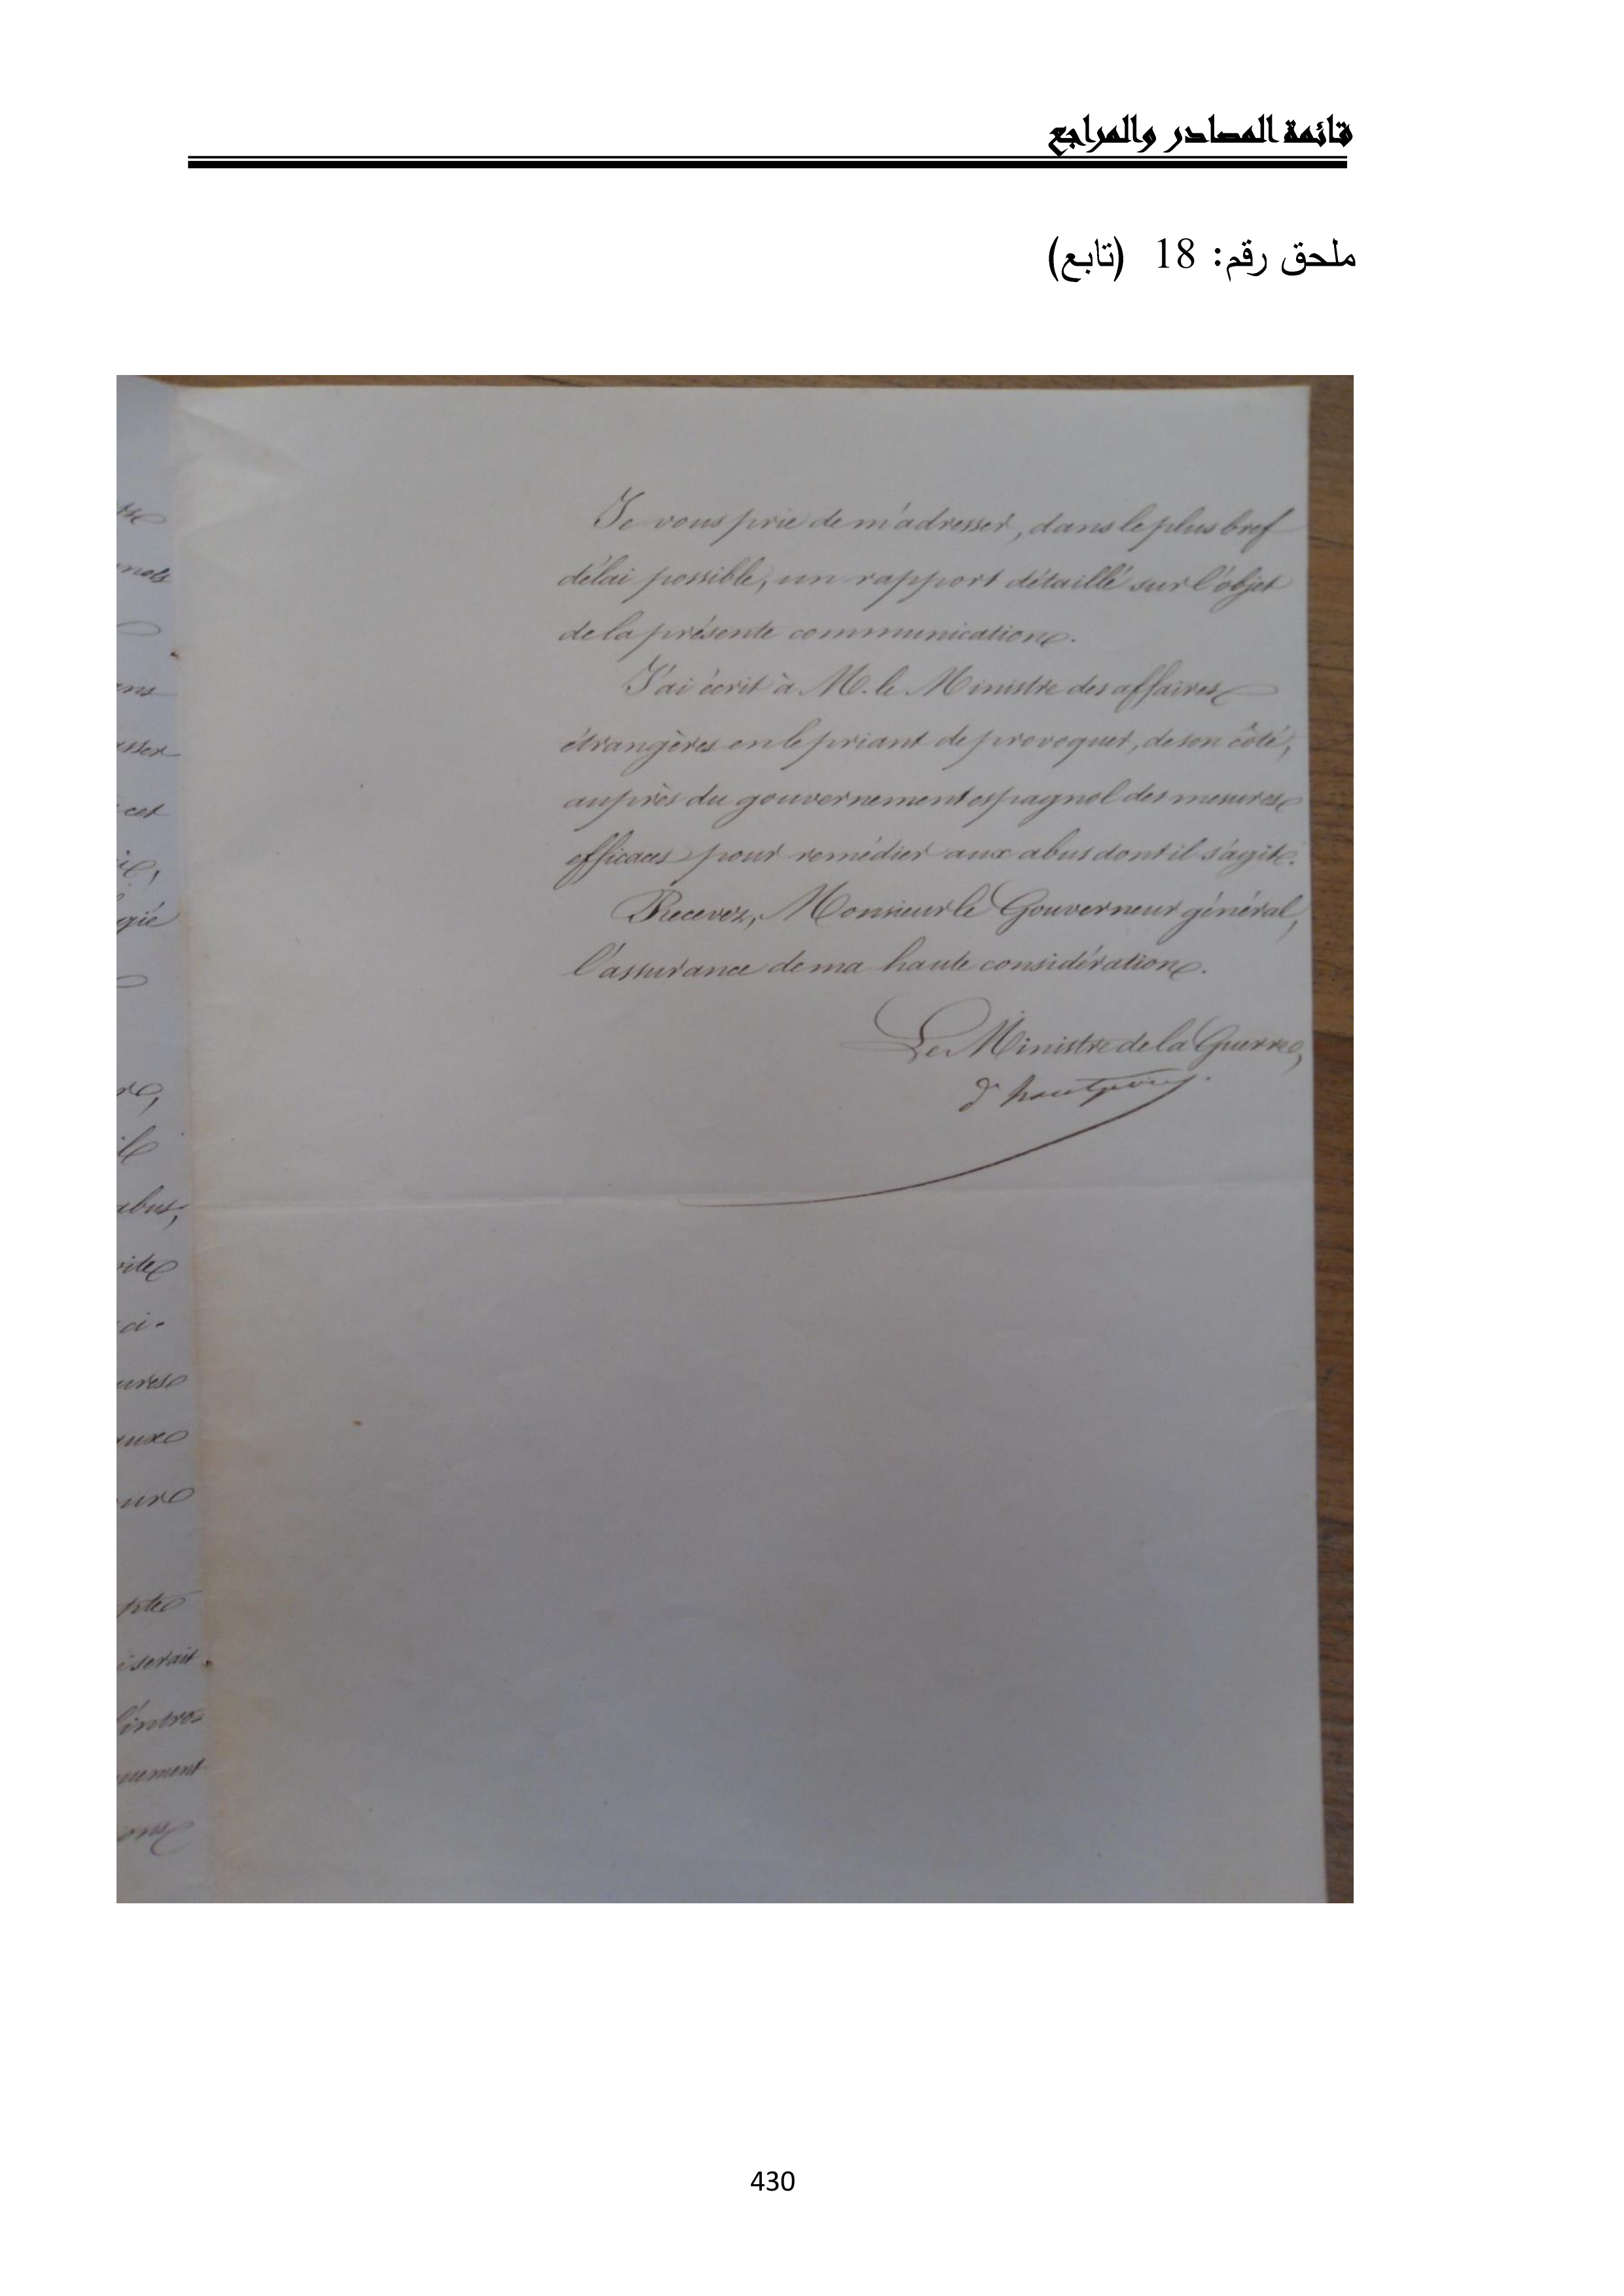 قائمة المصادر والمراجع
ملحق رقم: 18 (تابع)
Je vous prie de m'adresser, dans le plus bref
délai possible, un rapport détaillé sur l'objet
de la présente communication.
J'ai écrit à M. le Ministre des affaires
étrangères en le priant de provoquer, de son côté,
auprès du gouvernement espagnol des mesures
efficaces pour remédier aux abus dont il s'agit.
Recevez, Monsieur le Gouverneur général,
l'assurance de ma haute considération.
Le Ministre de la Guerre,
d'hautpoul.
cet
gié
abus,
ci.
serait
l'intro-
430